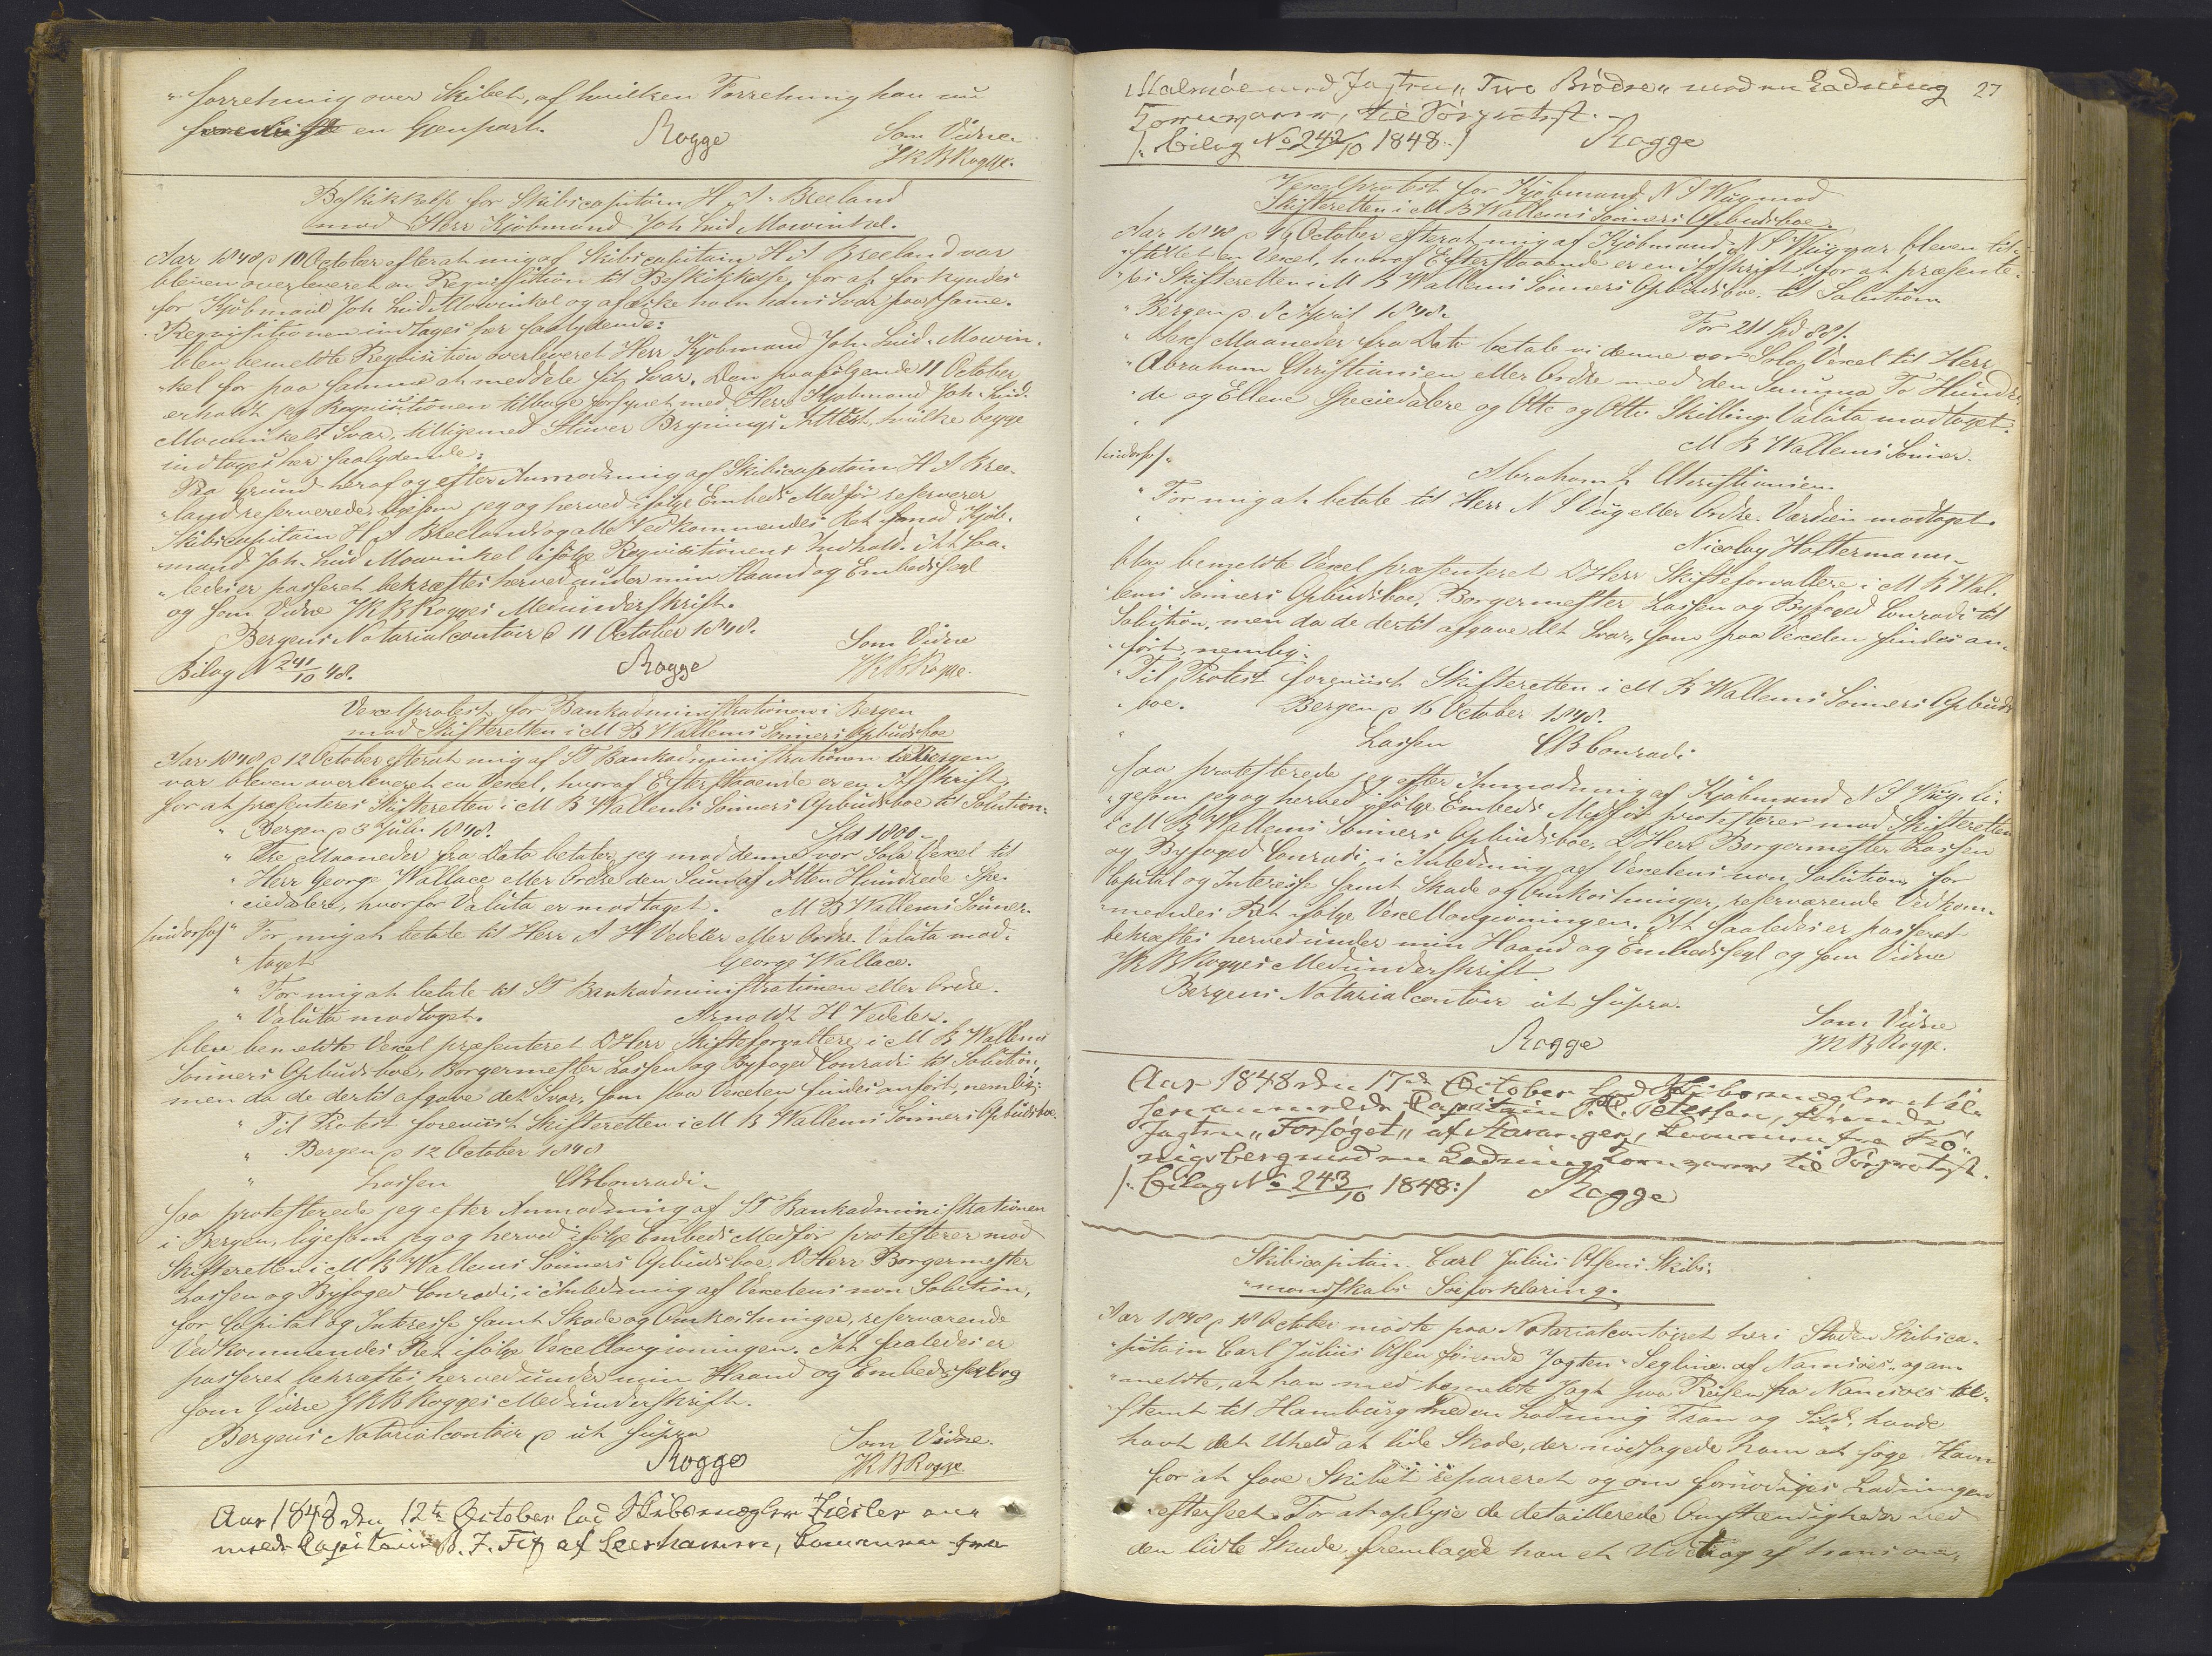 "forretning over Skibet, af hvilken Forretning han nu
en Gjenpart.
Rogge
Som Vidne
JKBRogge.
Beskikkelse for Skibscapitain H A Breeland
mod Herr Kjøbmand Joh Lud Mowinkel.
Aar 1848 d 10 October efterat mig af Skibscapitain H A Breeland var
bleven overleveret en Requisition til Beskikkelse, for at forkyndes
for Kjøbmand Joh Lud Mowinkel og afæske ham hans Svar paa samme.
Requisitionen indtages her saalydende:
blev bemeldte Requisition overleveret Herr Kjøbmand Joh. Lud. Mowin-
"kel for paa samme at meddele sit Svar. Den paafølgende 11 October
erholdt jeg Requisitionen tilbage forsynet med Herr Kjøbmand Joh. Lud.
Mowinkels Svar, tilligemed Stuver Brynings Attest, hvilke begge
indtages her saalydende:
Paa Grund heraf og efter Anmodning af Skibscapitain H A Bree-
"land reserverede ligesom jeg og herved ifølge Embeds Medfør reserverer
Skibscapitain H A Breelands og alle Vedkommendes Ret imod Kjøb-
"mand Joh. Lud Mowinkel ifølge Requisitionens Indhold. At saa-
"ledes er passeret bekræftes herved under min Haand og Embedssegl
og som Vidne JKBRogges Medunderskrift.
Bergens Notarialcontoir d 11 October 1848.
Som Vidne
Bilag No 241/10 48.
Rogge
JKBRogge.
Vexelprotest for Bankadministrationen i Bergen
mod Skifteretten i M B Wallems Sønners Opbudsboe
Aar 1848 d 12 October efterat mig af St Bankadministrationen i Bergen
var bleven overleveret en Vexel, hvoraf Efterstaaende er en Afskrift
for at præsenteres Skifteretten i M B Wallems Sønners Opbudsboe til Solution.
" Bergen d 3 Juli 1848. Spd 1800
" Tre Maaneder fra Dato betaler jeg mod denne vor Sola Vexel til
" Herr George Wallace eller Ordre den Sum af Atten Hundrede Spe-
" ciedalere, hvorfor Valuta er modtaget. M B Wallems Sønner.
Indorsos/ " For mig at betale til Herr A H Vedeler eller Ordre. Valuta mod-
" taget George Wallace.
" For mig at betale til St Bankadministrationen eller Ordre.
" Valuta modtaget. Arnoldt H Vedeler.
blev bemeldte Vexel præsenteret DHerr Skifteforvaltere i M B Wallems
Sønners Opbudsboe, Borgermester Lassen og Byfoged Conradi til Solution,
men da de dertil afgave det Svar, som paa Vexelen findes anført, nemlig:
" Til Protest foreviist Skifteretten i M B Wallems Sønners Opbudsboe.
" Bergen d 12 October 1848
" Lassen CBConradi.
saa protesterede jeg efter Anmodning af St Bankadministrationen
i Bergen, ligesom jeg og herved ifølge Embeds Medfør protesterer mod
Skifteretten i M B Wallems Sønners Opbudsboe, DHerr Borgermester
Lassen og Byfoged Conradi, i Anledning af Vexelens non Solution,
for Capital og Interesse samt Skade og Omkostninger, reserverende
Vedkommendes Ret ifølge Vexellovgivningen. At saaledes er
passeret bekræftes herved under min Haand og Embedssegl og
som Vidne JKBRogges Medunderskrift.
Bergens Notarialcontoir d ut supra
Som Vidne.
Rogge
JKBRogge
Aar 1848 den 12te October lod Skibsmægler Ziesler an-
melde Capitain B. J. Fix af Leerhavnen, kommen fra
27
Malmöe med Jagten "Two Brödre" med en Ladning
Kornvarer, til Sörgvotsft.
/: Bilag No 242/10 1848 :/ Rogge
Vexelprotest for Kjøbmand N S Wiig mod
Skifteretten i M B Wallems Sønners Opbudsboe.
Aar 1848 d 16 October efterat mig af Kjøbmand N S Wiig var bleven til-
"stillet en Vexel, hvoraf Efterstaaende er en Afskrift, for at præsente-
"res Skifteretten i M B Wallems Sønners Opbudsboe, til Solution
"Bergen d 8 April 1848. For 211 Spd 88 s.
" Sex Maaneder fra Dato betale vi denne vor Sola Vexel til Herr
"Abraham Christiansen eller Ordre med den Summa To Hundre-
"de og Elleve Speciedalere og Otte og Otti Skilling. Valuta modtaget.
" M B Wallems Sønner.
Indorsos/. Abraham Christiansen
" For mig at betale til Herr N S Wiig eller Ordre. Værdien modtaget.
" Nicolay Holtermann.
blev bemeldte Vexel præsenteret DHerr Skifteforvaltere i M B Wal-
"lems Sønners Opbudsboe, Borgermester Lassen og Byfoged Conradi til
Solution, men da de dertil afgave det Svar, som paa Vexelen findes an-
"ført, nemlig:
" Til Protest foreviist Skifteretten i M B Wallems Sønners Opbuds
"boe. Bergen d 16 October 1848.
" Lassen CBConradi
saa protesterede jeg efter Anmodning af Kjøbmand N S Wiig, li-
"gesom jeg og herved ifølge Embeds Medfør protesterer mod Skifteretten
i M B Wallems Sønners Opbudsboe, DHerr Borgermester Lassen
og Byfoged Conradi, i Anledning af Vexelens non Solution, for
Capital og Interesse samt Skade og Omkostninger, reserverende Vedkom-
"mendes Ret ifølge Vexellovgivningen. At saaledes er passeret
bekræftes herved under min Haand og Embedssegl og som Vidne
JKBRogges Medunderskrift
Bergens Notarialcontoir ut supra.
Som Vidne
Rogge
JKBRogge.
Aar 1848 den 17de October lod Skibsmægler Niel-
sen anmelde Capitain P. C. Petersen, förende
Jagten "Forsöget" af Stavanger, kommen fra Kö-
nigsberg med en Ladning Kornvarer til
/: Bilag No 243/10 1848 :/ Rogge
Skibscapitain Carl Julius Olsens Skibs-
"mandskabs Søeforklaring.
Aar 1848 d 18 October mødte paa Notarialcontoiret her i Staden Skibsca-
"pitain Carl Julius Olsen førende Jagten "Segline" af Namsoes, og an-
"meldte, at han med bemeldte Jagt paa Reisen fra Namsoes be-
"stemt til Hamburg med en Ladning Tran og Sild, havde
havt det Uheld at lide Skade, der nødsagede ham at søge Havn
for at faae Skibet repareret og om fornødiges Ladningen
efterseet. For at oplyse de detaillerede Omstændigheder ved
den lidte Skade, fremlagde han et Udtog af